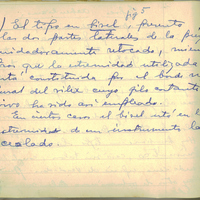 fig 5
) El tipo en bisel, presenta
las dos partes laterales de la pie
cuidadosamente retocado, mien
que la extremidad utilizada
constituida por el borde n
nal del silex cuyo filo cortante
vivo ha sido así empleado.
En ciertos casos el bisel está en la
extremidad de un instrumento la
ceolado.